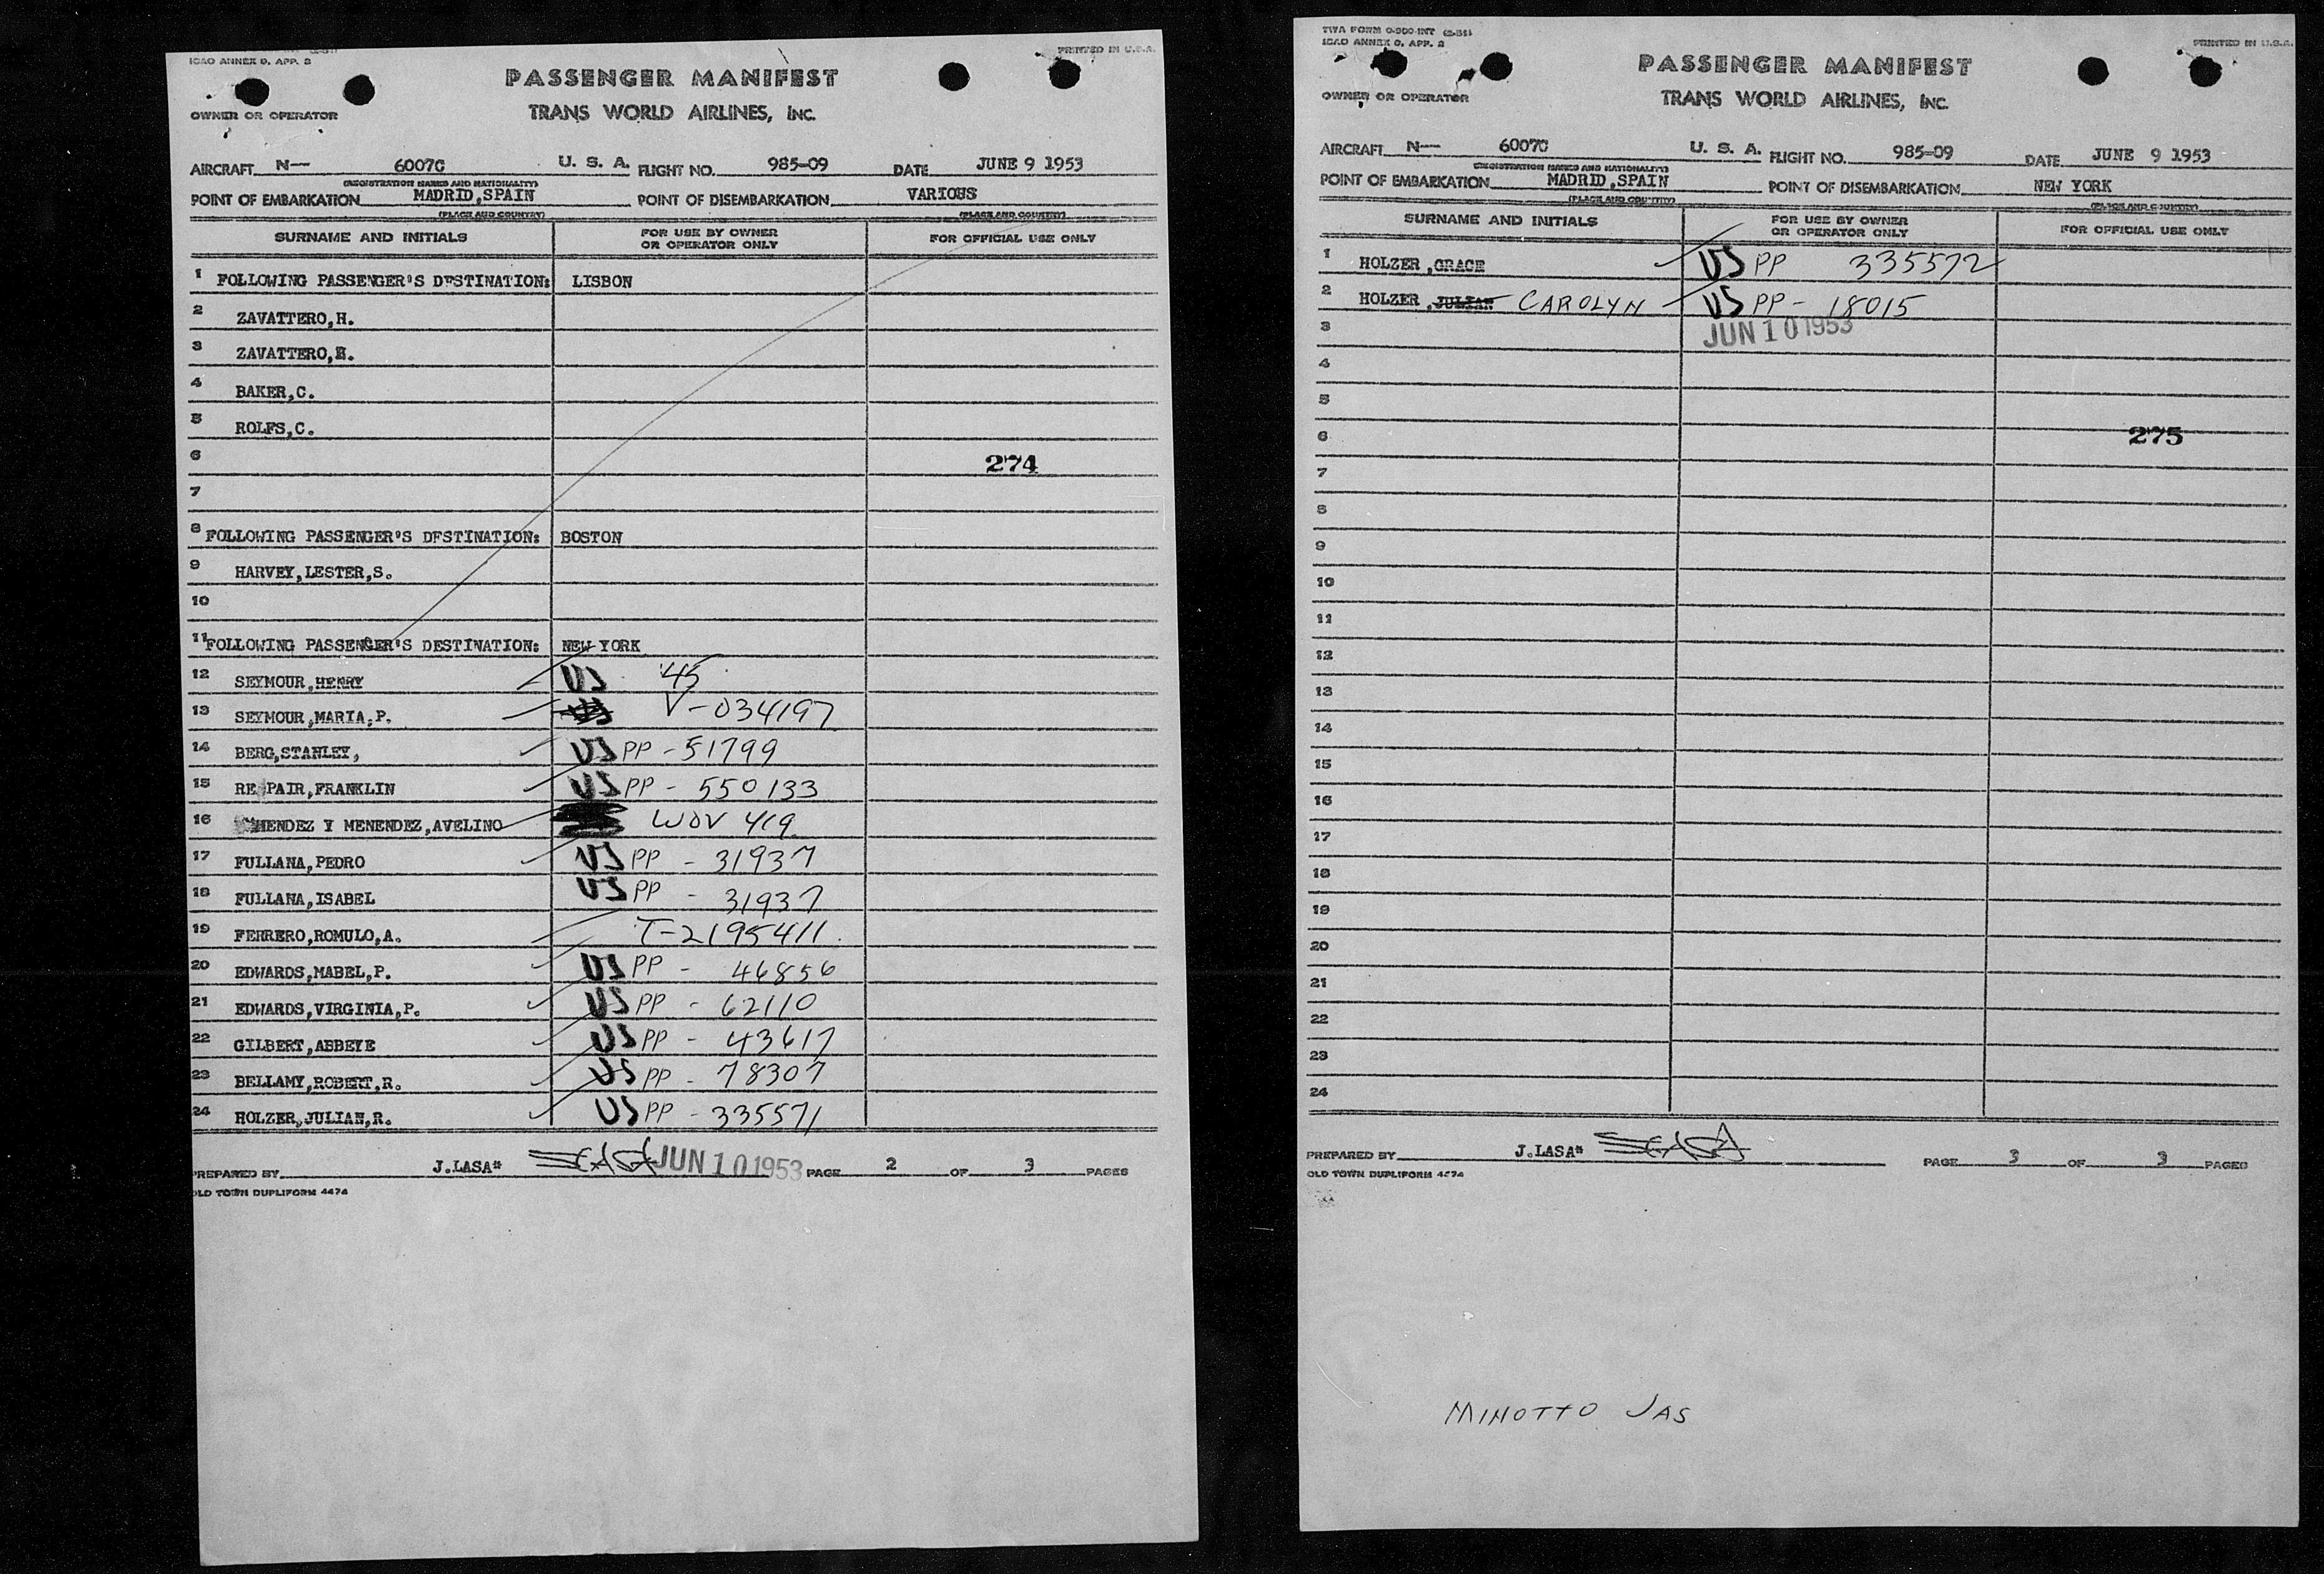 ICAO ANNEX 9, APP. 2
PRINTED IN U.S.A.
PASSENGER MANIFEST
TRANS WORLD AIRLINES, INC.
OWNER OR OPERATOR
AIRCRAFT N-- 6007C U. S. A. FLIGHT NO. 985-09 DATE JUNE 9 1953
(REGISTRATION MARKS AND NATIONALITY)
POINT OF EMBARKATION MADRID,SPAIN POINT OF DISEMBARKATION VARIOUS
(PLACE AND COUNTRY) (PLACE AND COUNTRY)
SURNAME AND INITIALS FOR USE BY OWNER OR OPERATOR ONLY FOR OFFICIAL USE ONLY
1 FOLLOWING PASSENGER'S DESTINATION: LISBON
2 ZAVATTERO,H.
3 ZAVATTERO,
4 BAKER,C.
5 ROLFS,C.
6 274
7
8 FOLLOWING PASSENGER'S DESTINATION: BOSTON
9 HARVEY,LESTER,S.
10
11 FOLLOWING PASSENGER'S DESTINATION: NEW YORK
12 SEYMOUR,HENRY US '45
13 SEYMOUR,MARIA,P. V-034197
14 BERG,STANLEY, US PP - 51799
15 RE PAIR,FRANKLIN US PP - 550133
16 MENDEZ Y MENENDEZ,AVELINO WOV 419
17 FULLANA,PEDRO US PP - 31937
18 FULLANA,ISABEL US PP - 31937
19 FERRERO,ROMULO,A. T-2195411
20 EDWARDS,MABEL,P. US PP - 46856
21 EDWARDS,VIRGINIA,P. US PP - 62110
22 GILBERT,ABBEYE US PP - 43617
23 BELLAMY,ROBERT,R. US PP - 78307
24 HOLZER,JULIAN,R. US PP - 335571
PREPARED BY J.LASA" JUN 10 1953 PAGE 2 OF 3 PAGES
OLD TOWN DUPLIFORM 4474
TWA FORM O-900-INT
ICAO ANNEX 9, APP. 2
PRINTED IN U.S.A.
PASSENGER MANIFEST
TRANS WORLD AIRLINES, INC.
OWNER OR OPERATOR
AIRCRAFT N-- 6007C U. S. A. FLIGHT NO. 985-09 DATE JUNE 9 1953
(REGISTRATION MARKS AND NATIONALITY)
POINT OF EMBARKATION MADRID,SPAIN POINT OF DISEMBARKATION NEW YORK
(PLACE AND COUNTRY) (PLACE AND COUNTRY)
SURNAME AND INITIALS FOR USE BY OWNER OR OPERATOR ONLY FOR OFFICIAL USE ONLY
1 HOLZER,GRACE US PP 335572
2 HOLZER,JULIAN CAROLYN US PP - 18015
3 JUN 10 1953
4
5
6 275
7
8
9
10
11
12
13
14
15
16
17
18
19
20
21
22
23
24
PREPARED BY J.LASA" PAGE 3 OF 3 PAGES
OLD TOWN DUPLIFORM 4474
MINOTTO JAS